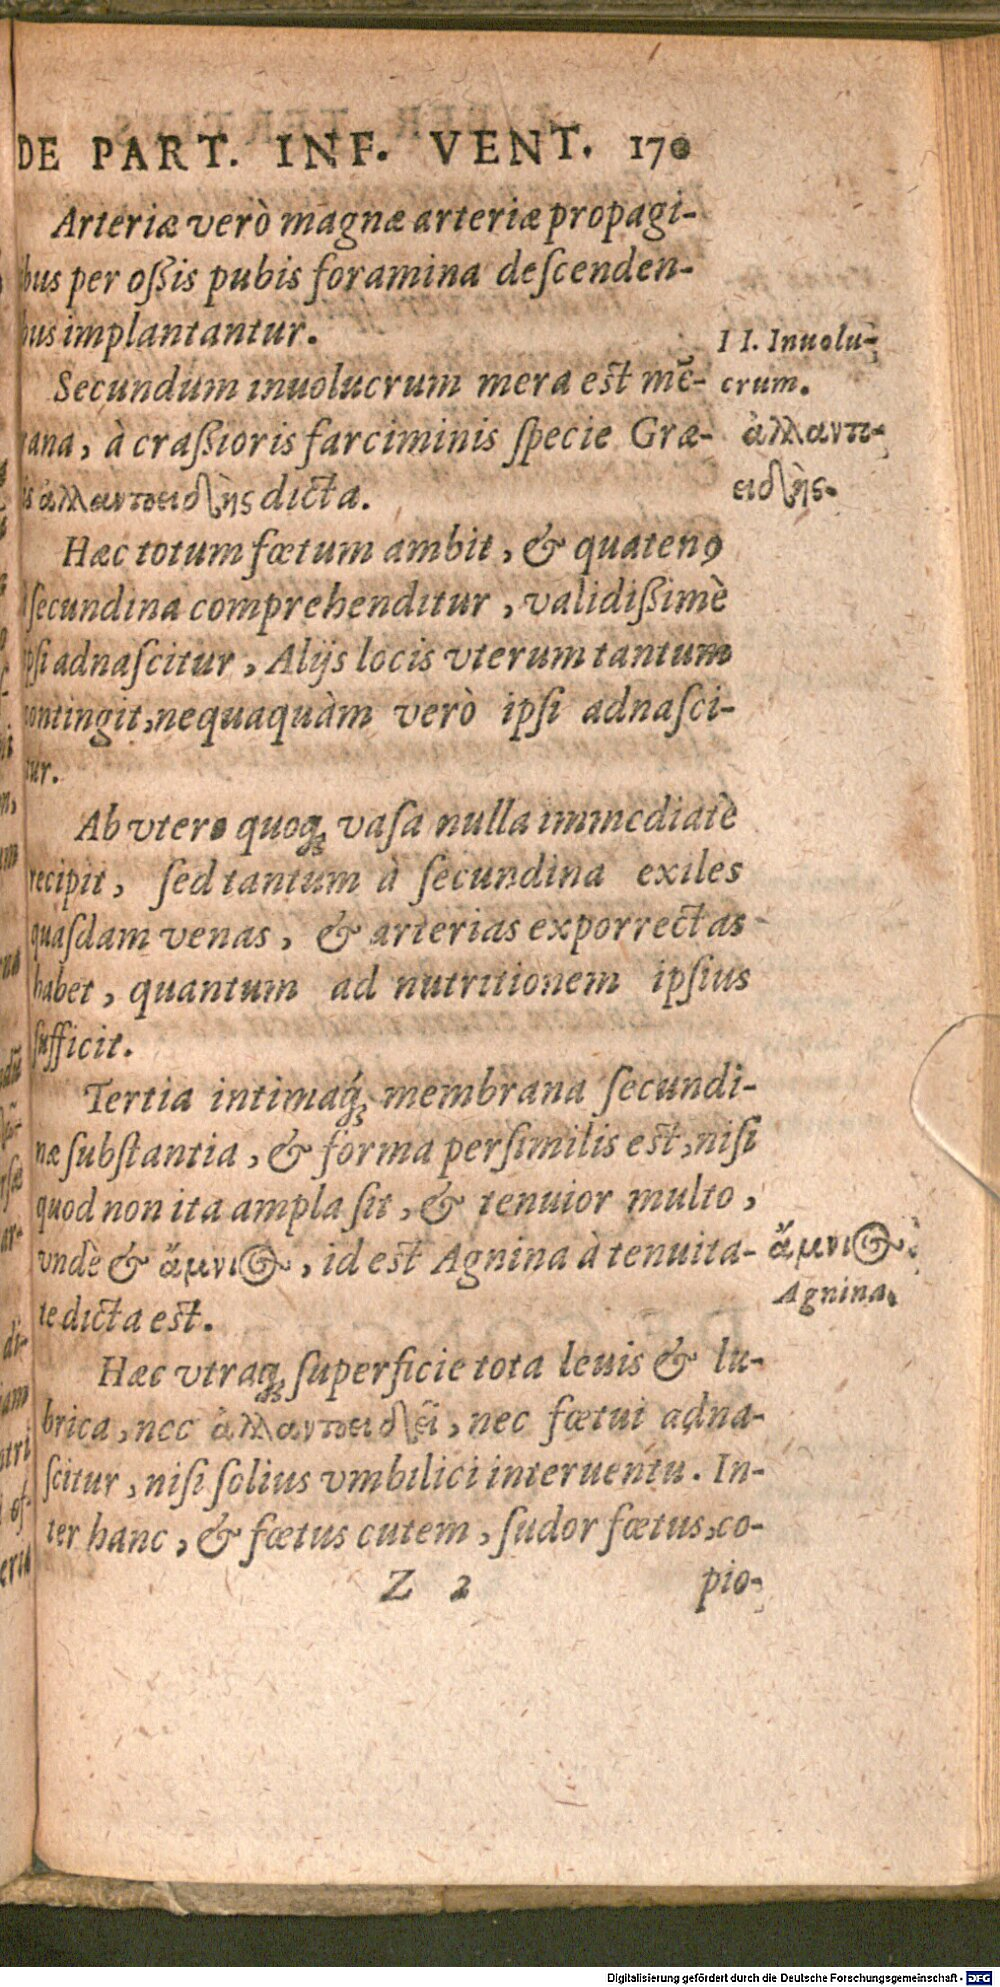 DE PART. INF. VENT. 170
Arteriæ verò magnæ arteriæ propagi-
bus per oſsis pubis foramina deſcenden-
bus implantantur.
Secundum inuolucrum mera est mẽ-
rana, à craſsioris farciminis ſpecie Græ-
is ἀλλαντοειδὴς dicta.
II. Inuolu-
crum.
ἀλλαντο-
ειδὴς.
Hæc totum fœtum ambit, & quatenꝰ
ſecundina comprehenditur, validiſsimè
ipſi adnaſcitur, Alijs locis vterum tantum
contingit, nequaquàm verò ipſi adnaſci-
tur.
Ab vtero quoq; vaſa nulla immediatè
recipit, ſed tantum à ſecundina exiles
quaſdam venas, & arterias exporrectas
habet, quantum ad nutritionem ipſius
ſufficit.
Tertia intimaq́; membrana ſecundi-
næ ſubſtantia, & forma perſimilis est, niſi
quod non ita ampla ſit, & tenuior multo,
vndè & ἄμνιος, id est Agnina à tenuita-
te dicta est.
ἄμνιος.
Agnina.
Hæc vtraq; ſuperficie tota leuis & lu-
brica, nec ἀλλαντοειδεῖ, nec fœtui adna-
ſcitur, niſi ſolius vmbilici interuentu. In-
ter hanc, & fœtus cutem, ſudor fœtus, co-
Z 2 pio-
Digitalisierung gefördert durch die Deutsche Forschungsgemeinschaft - DFG